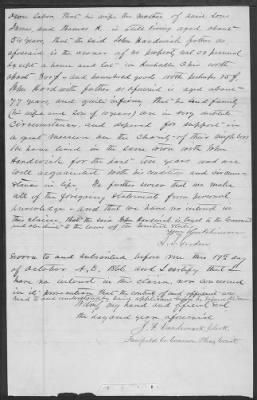 upon labor, that his wife the mother of said sons
James and Thomas H. is still living aged about
54 years, that the said John Hardwick father as
aforesaid is the owner of no property real or personal
except a home and lot - in Ohio worth
about 300$ - and household goods worth perhaps 75$
John Hardwick father as aforesaid is aged about
77 years, and quite infirm, that he and family
(his wife and son of 10 years) are in very limited
circumstances, and depend for support in
a great measure on the charity of their neighbors
We have lived in the same town with John
Hardwick for the last ten years and are
well acquainted with his condition and circum-
stances in life, We further swear that we make
all of the foregoing statement from personal
knowledge - and that we have no interest in
this claim, that the said John Hardwick is loyal to the Government
and obedient to the laws of the United States,
Sworn to and subscribed before me this 19th day
of October A.D. 186 and I certify that I
have no interest in this claim, nor concerned
in its prosecution that the contents of said affidavit were
Witness my hand and official seal
the day and year aforesaid
Clerk
Fairfield Co Common Pleas Court